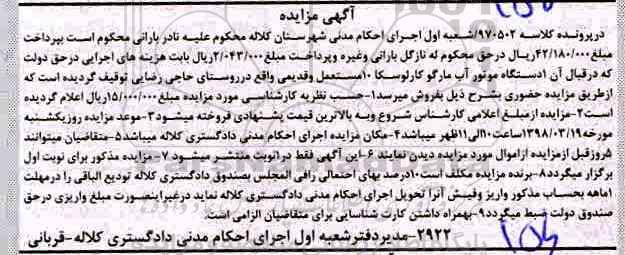 آگهی مزایده
درپرونده کلاسه ۹۷۰۵۰۲/شعبه اول اجرای احکام مدنی شهرستان کلاله محکوم علیه نادر بارانی محکوم است بپرداخت
مبلغ۴۲/۱۸۰/۰۰۰ریال درحق محکوم له نازگل بارانی وغیره وپرداخت مبلغ۲/۰۴۳/۰۰۰ریال بابت هزینه های اجرایی درحق دولت
که درقبال آن ۱دستگاه موتور آب مارگو کارلوسکا ۱۰مستعمل وقدیمی واقع درروستای حاجی رضایی توقیف گردیده است که
ازطریق مزایده حضوری بشرح ذیل بفروش میرسد۱-حسب نظریه کارشناسی مورد مزایده مبلغ۱۵/۰۰۰/۰۰۰ریال اعلام گردیده
است۲-مزایده ازمبلغ اعلامی کارشناس شروع وبه بالاترین قیمت پشنهادی فروخته میشود۳-موعد مزایده روزیکشنبه
مورخه۱۳۹۸/۰۳/۱۹ساعت۱۰الی۱۱ظهر میباشد۴-مکان مزایده اجرای احکام مدنی دادگستری کلاله میباشد۵-متقاضیان میتوانند
۵روزقبل ازمزایده ازاموال مورد مزایده دیدن نمایند ۶-این آگهی فقط در۱نوبت منتشر میشود ۷-مزایده مذکور برای نوبت اول
برگزار میگردد۸-برنده مزایده مکلف است۱۰درصد بهای احتمالی رافی المجلس بصندوق دادگستری کلاله تودیع الباقی را درمهلت
۱ماهه بحساب مذکور واریز وفیش آنرا تحویل اجرای احکام مدنی دادگستری کلاله نماید درغیراینصورت مبلغ واریزی درحق
صندوق دولت ضبط میگردد۹-بهمراه داشتن کارت شناسایی برای متقاضیان الزامی است.
۲۹۲۲-مدیردفترشعبه اول اجرای احکام مدنی دادگستری کلاله-قربانی